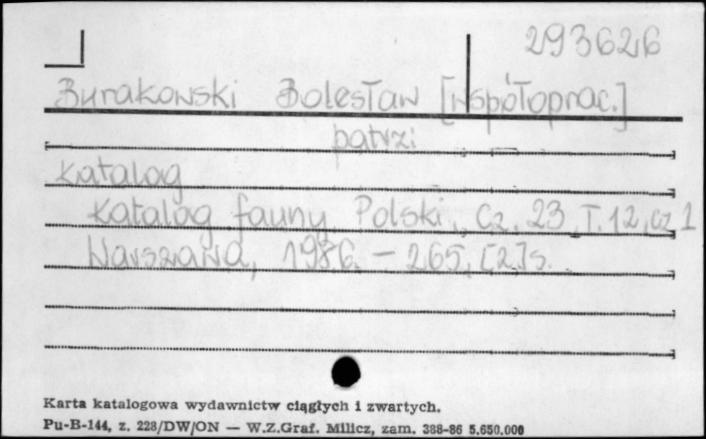 293626
Burakowski Bolesław [współoprac.]
patrz:
Katalog
Katalog fauny Polski, Cz. 23, T. 12, cz 1
Warszawa, 1986. - 265, [2] s.
Karta katalogowa wydawnictw ciągłych i zwartych.
Pu-B-144, z. 228/DW/ON — W.Z.Graf. Milicz, zam. 388-86 5.650.000